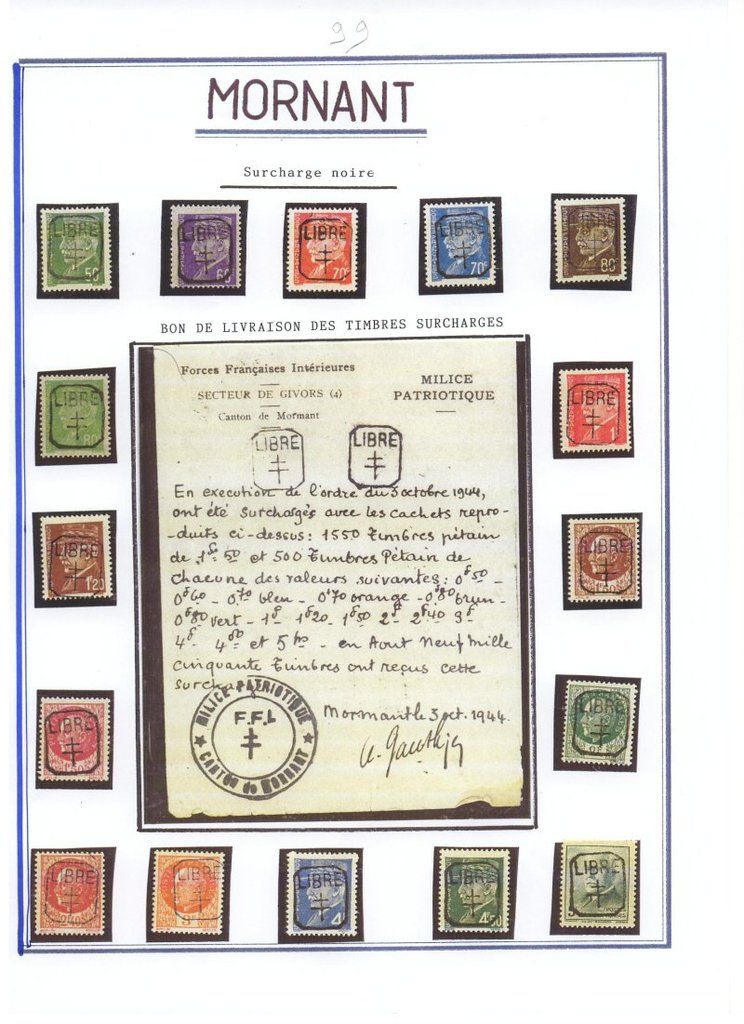 99
MORNANT
Surcharge noire
LIBRE LIBRE LIBRE LIBRE
50 60 70c 70c 80c
BON DE LIVRAISON DES TIMBRES SURCHARGES
Forces Françaises Intérieures
SECTEUR DE GIVORS (4)
Canton de Mornant
MILICE
PATRIOTIQUE
LIBRE LIBRE
En execution de l'ordre du 3 octobre 1944,
ont été surchargés avec les cachets repro-
-duits ci-dessus: 1550 timbres pétain
de 1f50 et 500 Timbres Pétain de
chacune des valeurs suivantes: 0f50 -
0f60 - 0f70 bleu - 0f70 orange - 0f80 brun -
0f80 vert - 1f - 1f20 - 1f50 2f - 2f40 3f
4f - 4f50 et 5f00 - en Aout Neuf mille
cinquante timbres ont reçus cette
surcharge
Mornant le 3 oct. 1944.
MILICE PATRIOTIQUE
F.F.I.
CANTON de MORNANT
LIBRE
LIBRE
1F
LIBRE
1F20
LIBRE
LIBRE
LIBRE
LIBRE
2F40
LIBRE
LIBRE
4F
LIBRE
4F50
LIBRE